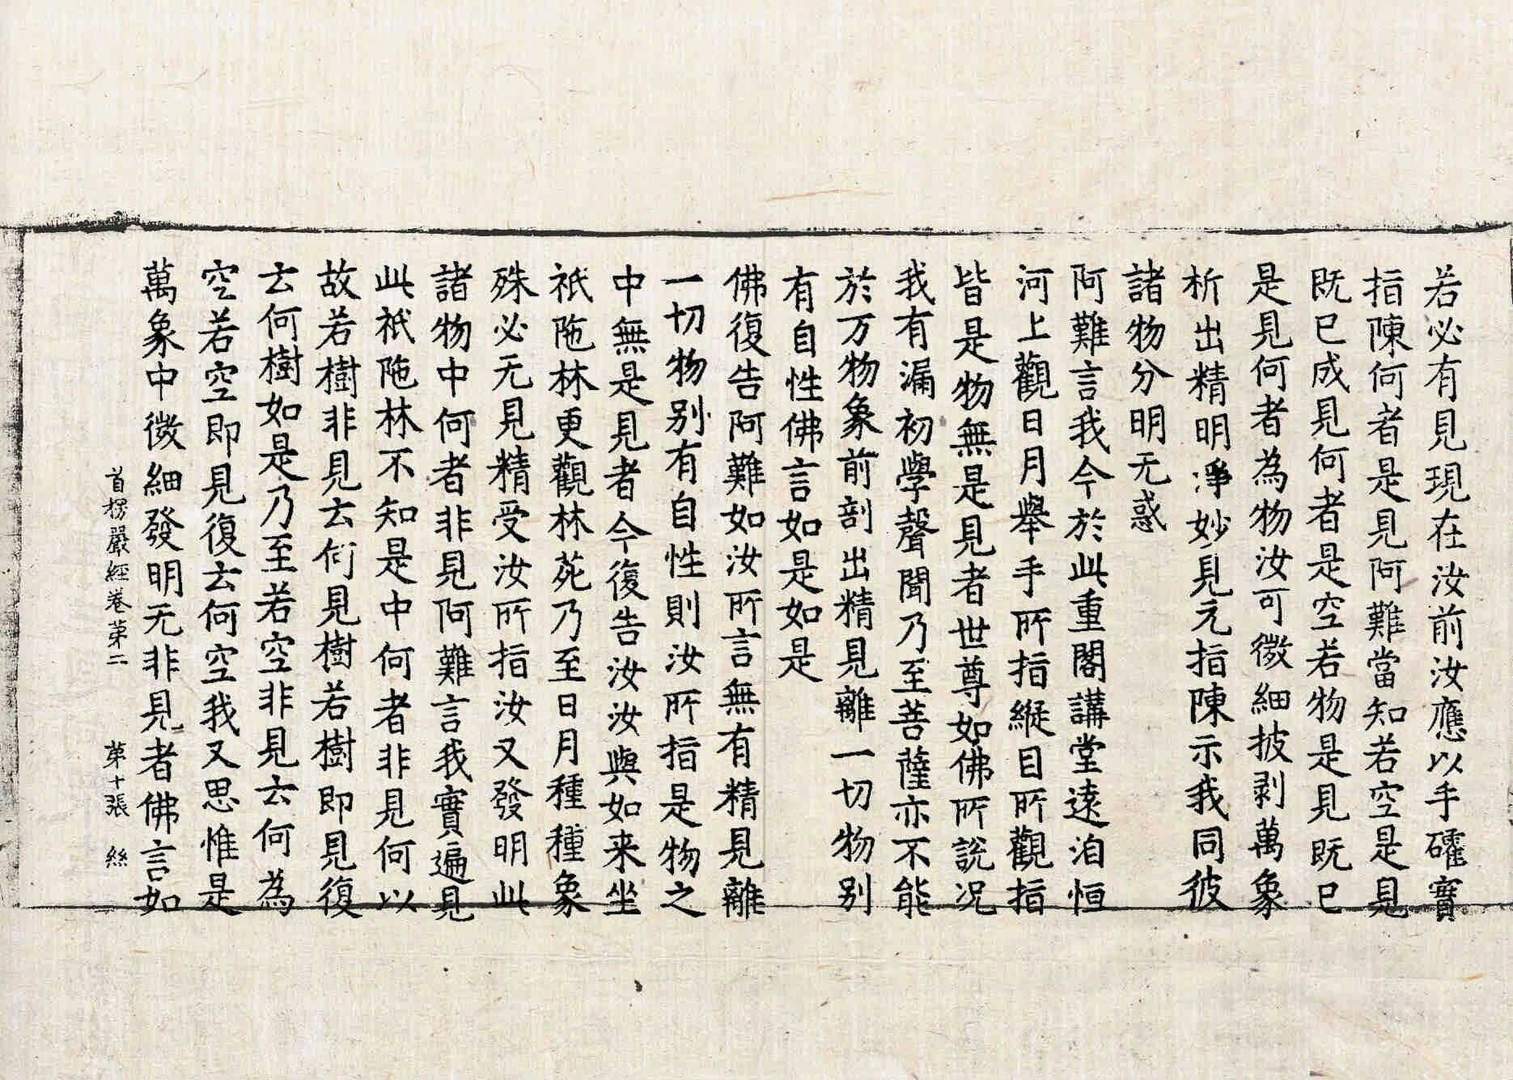 若必有見現在汝前汝應以手確實
指陳何者是見阿難當知若空是見
既已成見何者是空若物是見既已
是見何者為物汝可微細披剥萬象
析出精明淨妙見元指陳示我同彼
諸物分明无惑
阿難言我今於此重閣講堂遠洎恒
河上觀日月舉手所指縱目所觀指
皆是物無是見者世尊如佛所說况
我有漏初學聲聞乃至菩薩亦不能
於万物象前剖出精見離一切物別
有自性佛言如是如是
佛復告阿難如汝所言無有精見離
一切物別有自性則汝所指是物之
中無是見者今復告汝汝與如来坐
祇陁林更觀林苑乃至日月種種象
殊必无見精受汝所指汝又發明此
諸物中何者非見阿難言我實遍見
此祇陁林不知是中何者非見何以
故若樹非見云何見樹若樹即見復
云何樹如是乃至若空非見云何為
空若空即見復云何空我又思惟是
萬象中微細發明无非見者佛言如
首楞嚴經卷第二 第十張 絲